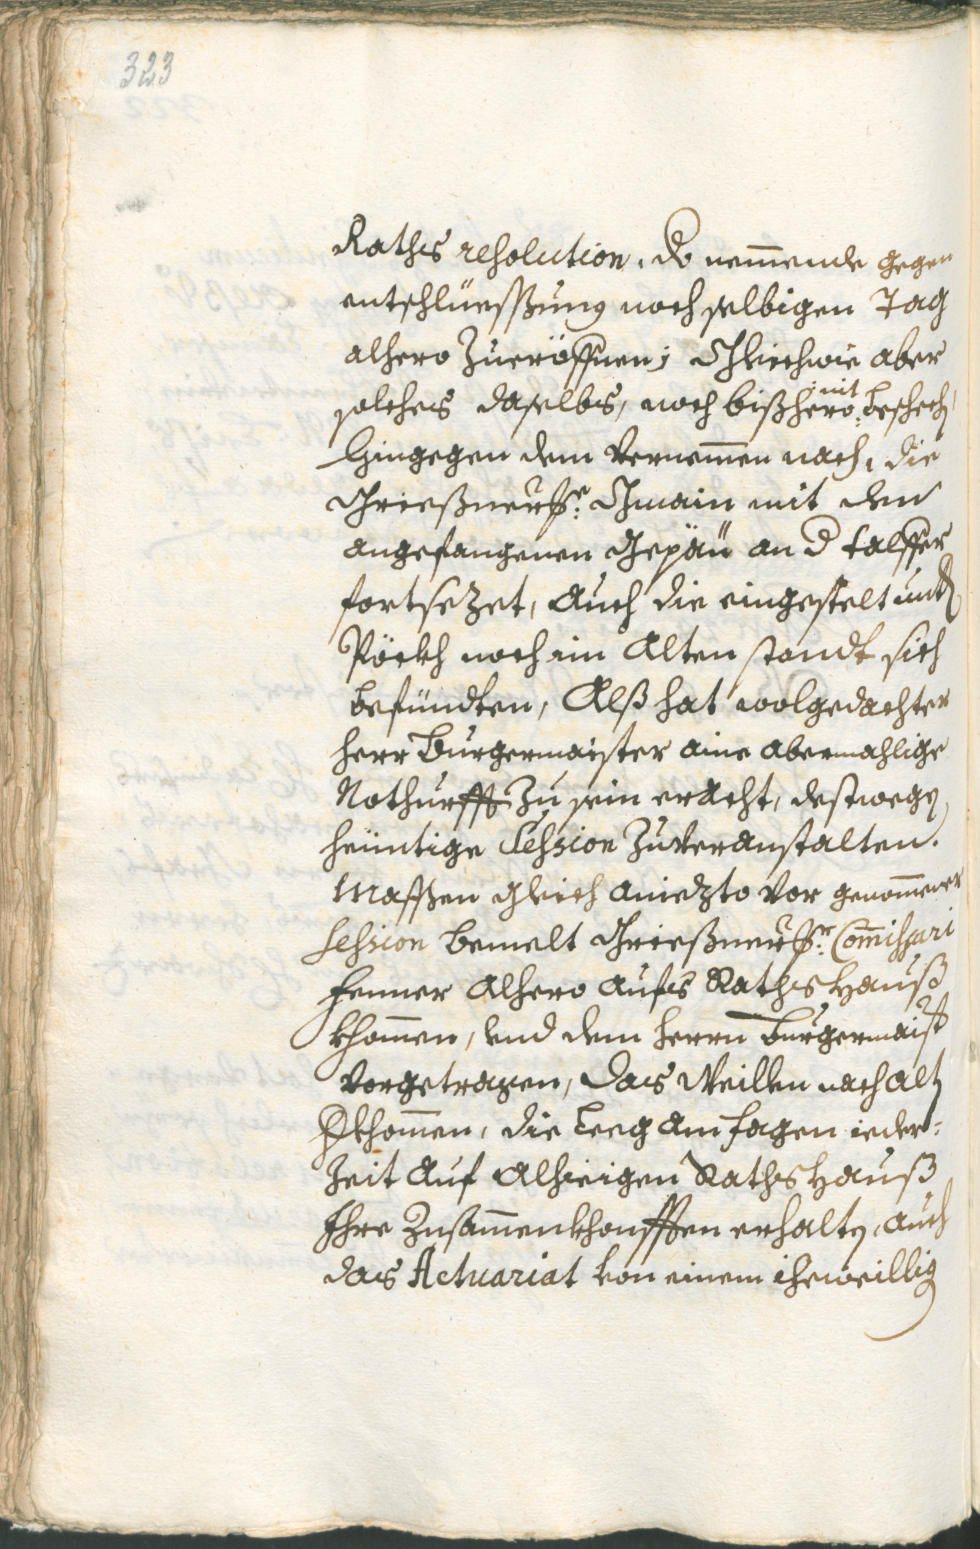 323
Raths resolution, do nemmende gegen
entschlüessßung noch selbigen Tag
alhero zueröffnen; Gleichwie aber
solches daselbs, noch bißhero nit beschech,
Hingegen dem vernemmen nach, die
Grießnerische Gmain mit dem
angefangenen Gepäu an d Talffer
fortsezet, auch die eingestelt
Pöckh noch im Alten standt sich
befündten, Alß hat wolgedachter
herr Burgermaister aine abermahlige
Nothurfft zu sein eracht, destwegen
heüntige Session zuveranstalten.
Massßen gleich aniezto vor genommener
Session bemelt Grießnerischer Commissari
Fenner Alhero aufs Rathshauß
khommen, und dem herrn Burgermaister
vorgetragen, das Weillen nach alt
herkhommen, die Leeg am Eagen ieder-
Zeit auf Alhieigen Rathshauß
Ihre Zusammenkhonfften erhalten, auch
das Actuariat von einem iheweillig